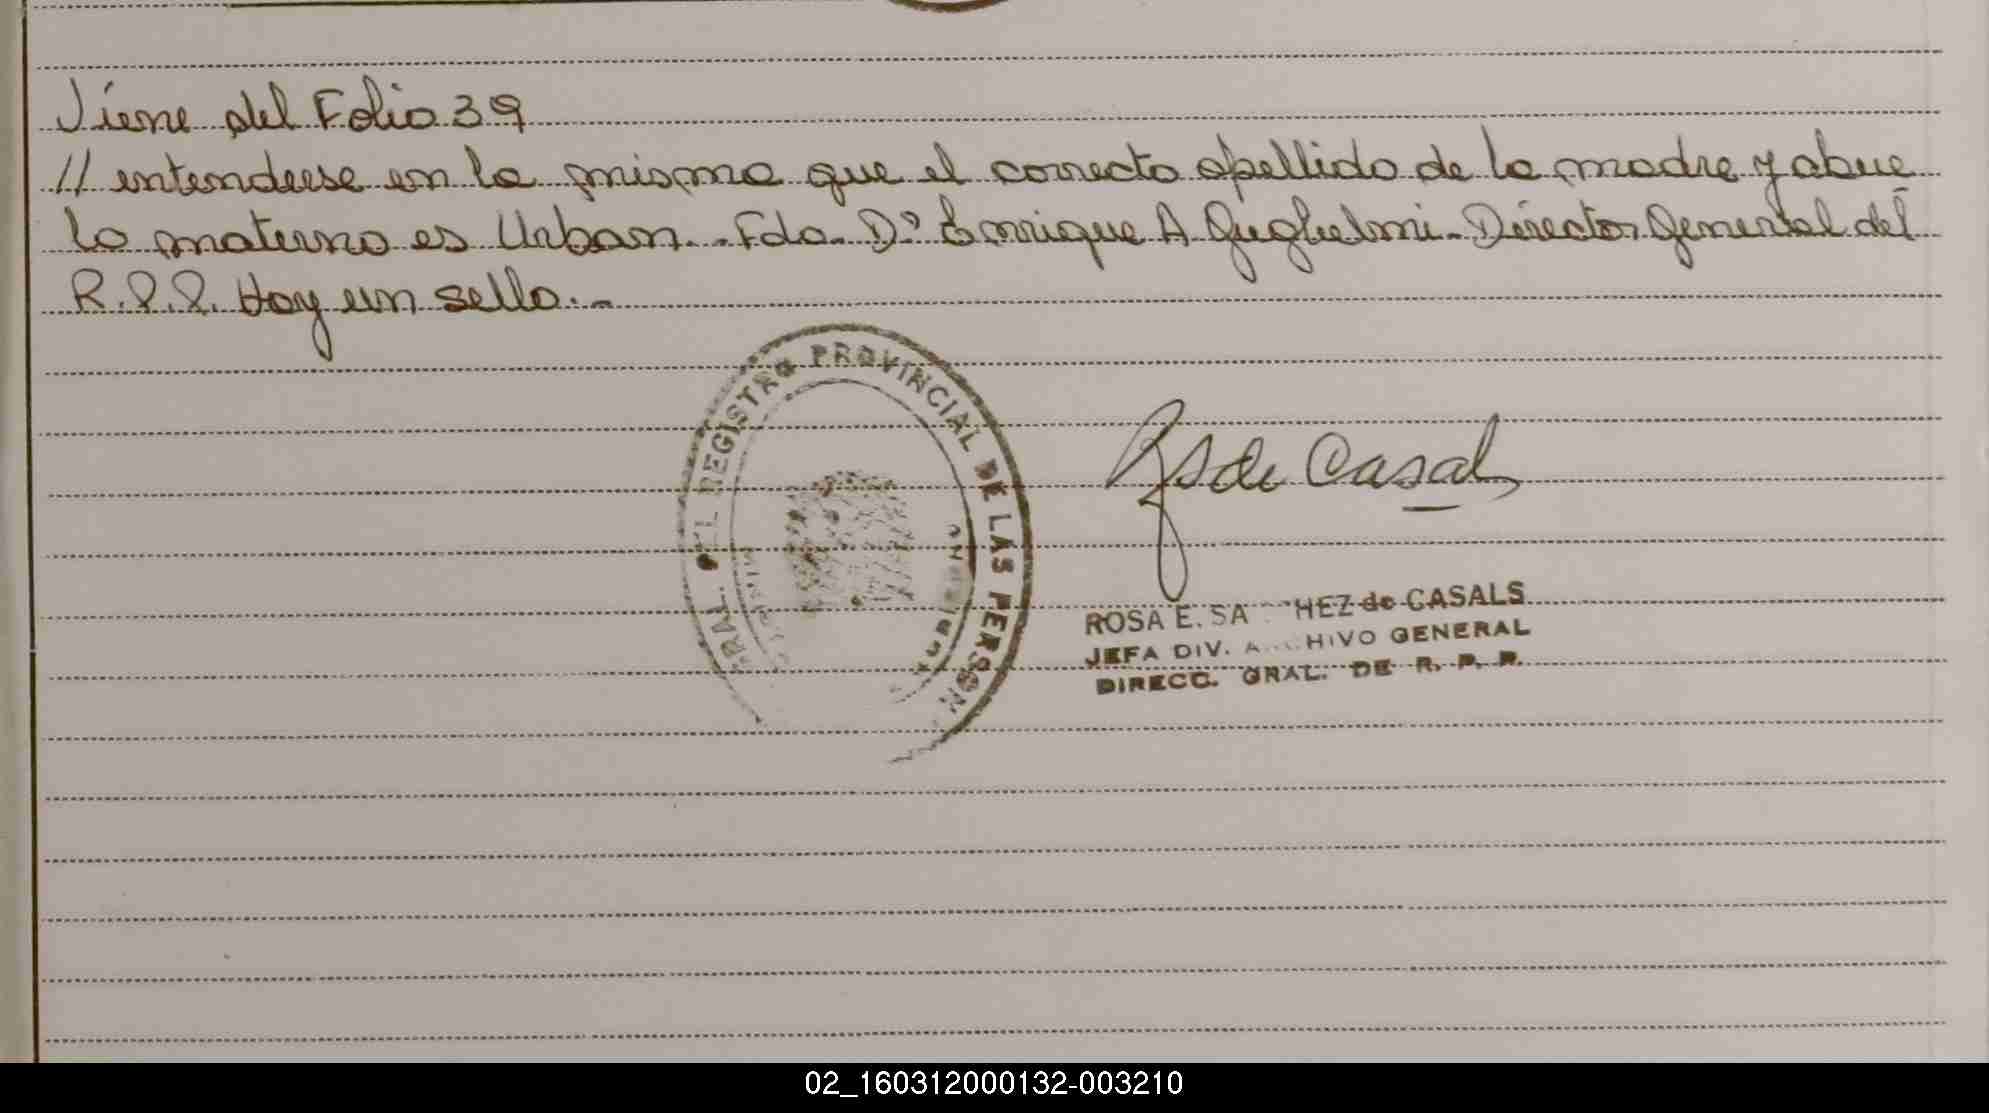 Viene del Folio 39
// entenderse en la misma que el correcto apellido de la madre y abue
lo materno es Urban.- Fdo. Dº Enrique A Guglielmi - Director General del
R.P.P. Hay un sello.-
REGISTRO PROVINCIAL DE LAS PERSON
RS de Casals
ROSA E. SA HEZ de CASALS
JEFA DIV. A HIVO GENERAL
DIRECC. GRAL. DE R. P. P.
02_160312000132-003210